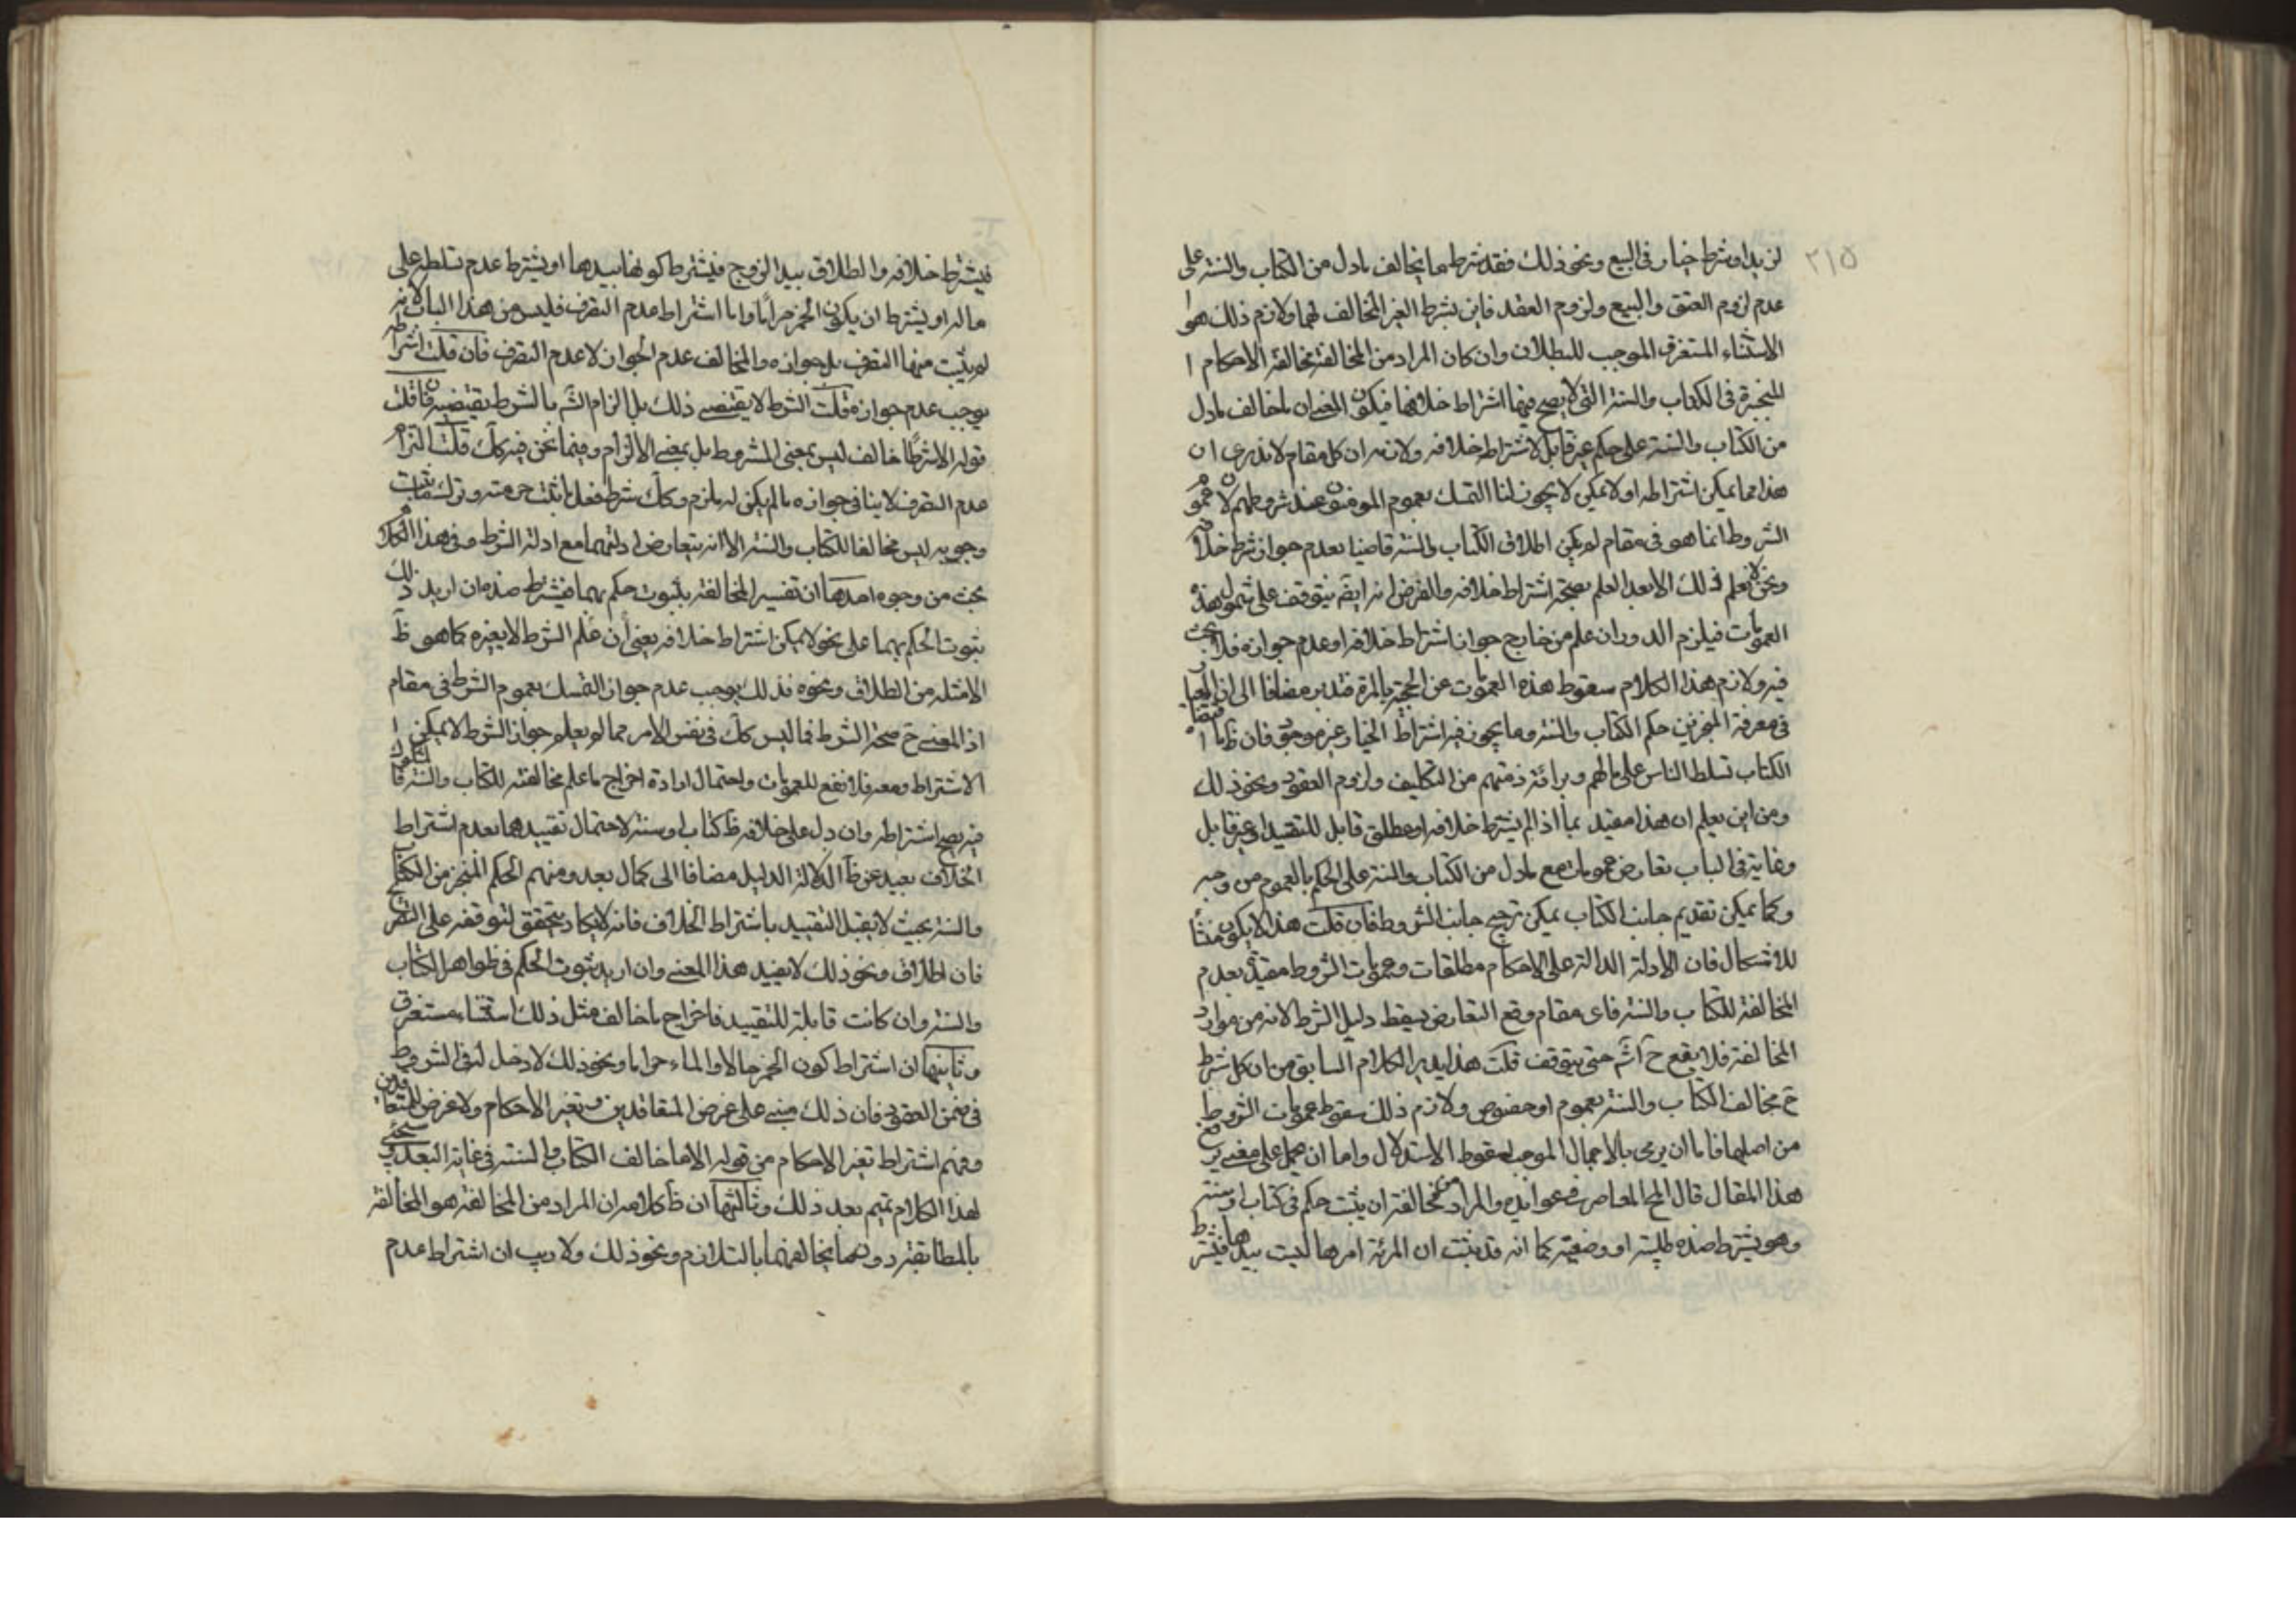 ٢١٥
لزيد او شرط خيار فى البيع ونحو ذلك فقد شرط ما يخالف مادل من الكتاب والسنة على
عدم لزوم العتق والبيع ولزوم العقد فاين يشرط الغير المخالف لهما ولازم ذلك هو ا
الاستثناء المستغرق الموجب للبطلان وان كان المراد من المخالفة مخالفة الاحكام ا
المنجزة فى الكتاب والسنة التى لا يصح فيها اشتراط خلافها فيكون المعنى ان ماخالف مادل
من الكتاب والسنة على حكم غير قابل لاشتراط خلافه ولازمه ان كل مقام لا ندرى ان
هذا مما يمكن اشتراطه او لا يمكن لا يجوز لنا التمسك بعموم المومنون عند شروطهم لان عموم
الشروط انما هو فى مقام لم يكن اطلاق الكتاب والسنة قاضيا بعدم جواز شرط خلافه
ونحن لا نعلم ذلك الا بعد العلم بصحة اشتراط خلافه والفرض انه ايضً يتوقف على شمول هذه
العمومات فيلزم الدور وان علم من خارج جواز اشتراط خلافه او عدم جوازه فلا بحث
فيه ولازم هذا الكلام سقوط هذه العمومات عن الحجية بالمرة فتدبر مضافا الى ان المعيار
فى معرفة المنجز من حكم الكتاب والسنة وما يجوز فيه اشتراط الخيار غير موجود فان
الكتاب تسلط الناس على مالهم وبرائة ذمتهم من التكاليف ولزوم العقود ونحو ذلك
ومن اين يعلم ان هذا مقيد بما اذا لم يشترط خلافه او مطلق قابل للتقييد او غير قابل
وغايته فى الباب تعارض عمومات مع مادل من الكتاب والسنة على الحكم بالعموم من وجه
وكما يمكن تقديم جانب الكتاب يمكن ترجيح جانب الشروط فان قلت هذا لا يكون منشأ
للاشكال فان الادلة الدالة على الاحكام مطلقات وعمومات الشروط مقيدة بعدم
المخالفة للكتاب والسنة فاى مقام وقع التعارض يسقط دليل الشرط لانه من موارد
المخالفة فلا يقع ح اثم حتى يتوقف قلت هذا يؤيد الكلام السابق من ان كل شرط
ح مخالف الكتاب والسنة بعموم او خصوص ولازم ذلك سقوط عمومات الشروط
من اصلها فاما ان يرمى بالاجمال الموجب لسقوط الاستدلال واما ان يحمل على معنى يرفع
هذا المقال قال المح المعاصر فى عوائده والمراد من مخالفته ان يثبت حكم فى كتاب او سنة
وهو يشترط ضده طلبية او وضعية كما انه قد ثبت ان المرئة امرها ليست بيدها فيشترط
فيشترط خلافه والطلاق بيد الزوج فيشترط كونها بيدها او يشترط عدم تسلطه على
ماله او يشترط ان يكون الخمر حراما واما اشتراط عدم التصرف فليس من هذا الباب لانه
لم يثبت منها التصرف بل جوازه والمخالف عدم الجواز لا عدم التصرف فان قلت اشتراطه
يوجب عدم جوازه قلت الشرط لا يقتضى ذلك بل الزام الشّ بالشرط يقتضيه فان قلت
قوله الا شرطًا خالف ليس بمعنى المشروط بل بمعنى الالزام وفيما نحن فيه كك قلت التزام
عدم التصرف لا ينافى جوازه مالم يكن له ملزم وكك شرط فعل ما يثبت حرمته وترك ما يثبت
وجوبه ليس مخالفا للكتاب والسنة الا انه يتعارض ادلتهما مع ادلة الشرط وفى هذا الكلام
بحث من وجوه احدها ان تفسير المخالفة بثبوت حكم بهما فيشترط ضده ان اريد ذلك
ثبوت الحكم بهما على نحو لا يمكن اشتراط خلافه يعنى ان علم الشرط لا يغيره كما هو ظ
الامثلة من الطلاق ونحوه فذلك يوجب عدم جواز التمسك بعموم الشرط فى مقام
اذ المعنى ح صحة الشرط فما ليس كك فى نفس الامر مما لم يعلم جواز الشرط لا يمكن ا
الاشتراط ومعه فلا نفع للعمومات واحتمال ارادة اخراج ماعلم مخالفته للكتاب والسنة
فيه يصح اشتراطه وان دل على خلافه ظ كتاب او سنة لاحتمال تقييدهما بعدم اشتراط
الخلاف بعيد عن ظ الدلالة الدليل مضافا الى كمال بعد ومنهم الحكم المنجز من الكتاب
والسنة بحيث لا يقبل التقييد باشتراط الخلاف فانه لا يكاد يتحقق لتوقفه على التصريح
فان اطلاق ونحو ذلك لا يفيد هذا المعنى وان اريد ثبوت الحكم فى ظواهر الكتاب
والسنة وان كانت قابلة للتقييد فاخراج ماخالف مثل ذلك استثناء مستغرق
وثانيها ان اشتراط كون الخمر حلالا والماء حراما ونحو ذلك لا دخل له فى الشروط
فى ضمن العقود فان ذلك مبنى على غرض المتعاقدين وتغير الاحكام ولا غرض للمتعاقدين
وفهم اشتراط تغير الاحكام من قوله الا ما خالف الكتاب والسنة فى غاية البعد وسيجئ
لهذا الكلام تتميم بعد ذلك وثالثها ان ظ كلامه ان المراد من المخالفة هو المخالفة
بالمطابقة دون ما يخالفهما بالتلازم ونحو ذلك ولا ريب ان اشتراط عدم